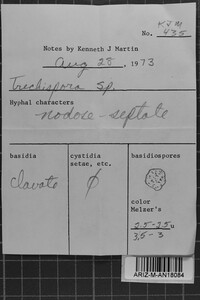 KJM
No. 435
Notes by Kenneth J Martin
Aug 28, 1973
Trechispora sp.
Hyphal characters
nodose-septate
basidia
cystidia
setae, etc.
basidiospores
clavate
φ
color
Melzer's
2.5-3.5u
3.5-3
ARIZ-M-AN18084